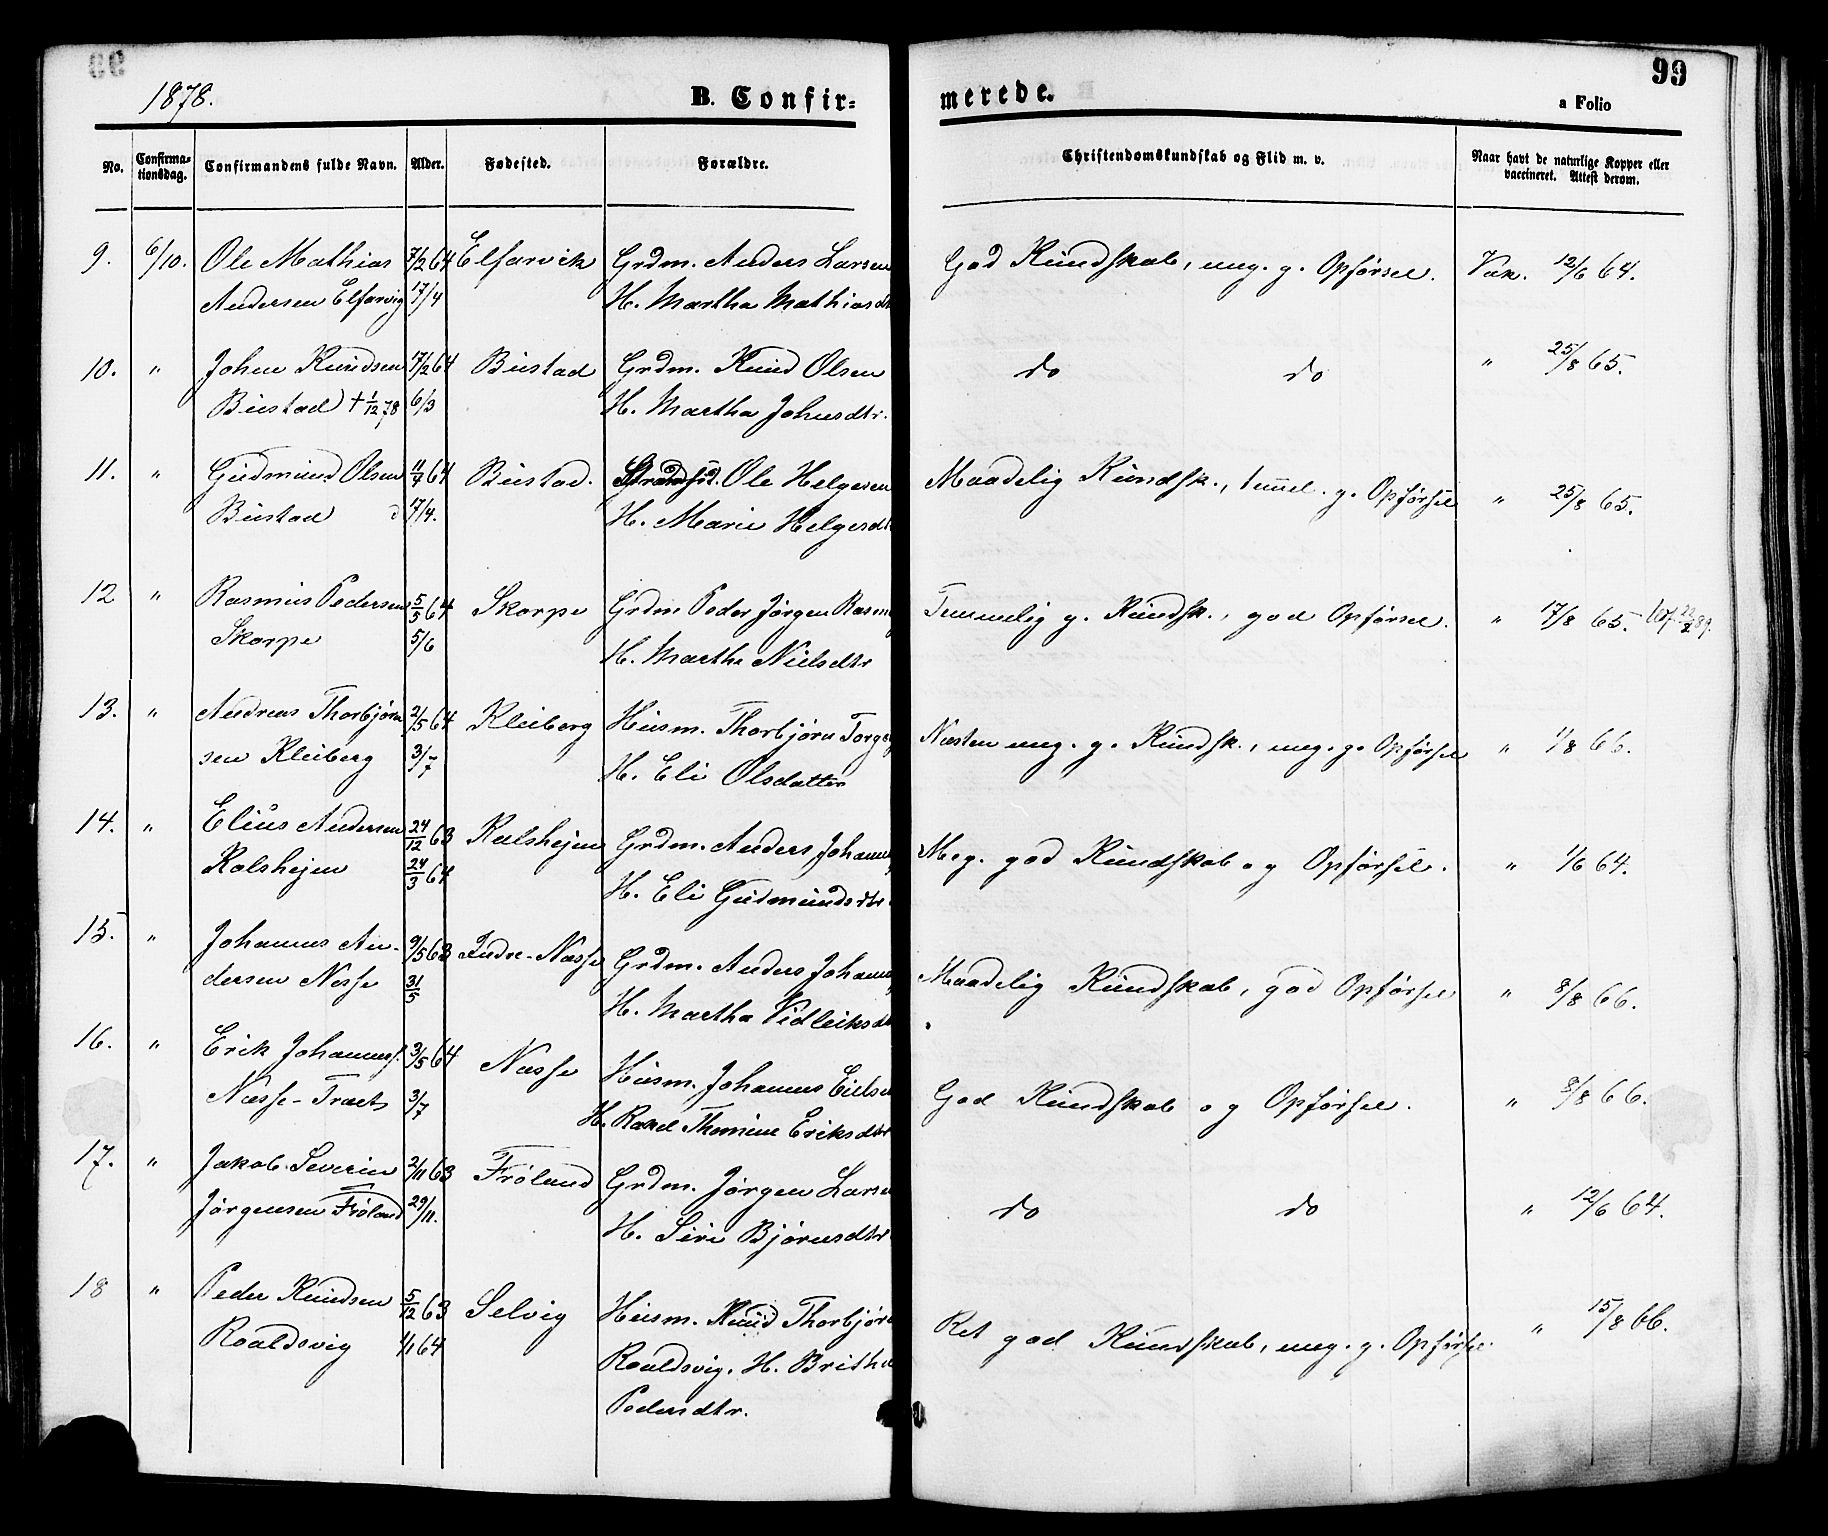 1878.
B. Confir-
merede.
99
a Folio
No.
Confirma-
tionsdag.
Confirmandens fulde Navn.
Alder.
Fødested.
Forældre.
Christendomskundskab og Flid m. v.
Naar havt de naturlige Kopper eller
vaccineret. Attest derom.
9. 6/10. Ole Mathias 7/2 64 Elfarvik Grdm. Anders Larsen God Kundskab, meg. g. Opførsel. Vak. 12/6 64.
Andersen Elfarvig 17/4 H. Martha Mathiasdt
10. " Johen Knudsen 17/2 64 Bustad Grdm. Knud Olsen do do " 25/8 65.
Bustad + 1/12 78 6/3 H. Martha Johnsdtr.
11. " Gudmund Olsen 11/4 64 Bustad. Ole Helgesen Maadelig Kundsk., temmel. g. Opførsel " 25/8 65.
Bustad 17/4. H. Marie Helgesdt
12 " Rasmus Pedersen 5/5 64 Skorpe Grdm Peder Jørgen Rasm Temmelig g. Kundsk., god Opførsel. " 17/8 65. 22/2 89.
Skorpe 5/6 H. Martha Nielsdtr
13. " Andreas Thorbjørn 2/5 64 Kleiberg Husm. Thorbjørn Torge Næsten meg. g. Kundsk., meg. g. Opførsel " 1/8 66.
sen Kleiberg 3/7 H. Eli Olsdatter
14. " Elius Andersen 24/12 63 Kalshejen Grdm. Anders Johann Meg. god Kundskab og Opførsel. " 1/6 64.
Kalshejen 24/3 64 H. Eli Gudmundsdtr
15. " Johannes An- 9/5 63 Indre-Næsse Grdm. Anders Johann Maadelig Kundskab, god Opførsel " 8/8 66.
dersen Næsse 31/5 H. Martha Vidleiksdt
16. " Erik Johanness. 3/5 64 Næsse Husm. Johannes Eielsen God Kundskab og Opførsel. " 8/8 66.
Næsse-Træet 3/7 H. Rakel Thomine Eriksdtr
17. " Jakob Severin 2/11 63 Frøland Grdm. Jørgen Larsen do do " 12/6 64.
Jørgensen Frøland 29/11. H. Siri Bjørnsdtr.
18 " Peder Knudsen 5/12 63 Selvig Husm. Knud Thorbjørn Ret god Kundskab, meg. g. Opførsel. " 15/8 66.
Roaldsvig 1/1 64 Roaldsvig. H. Britha
Pedersdtr.